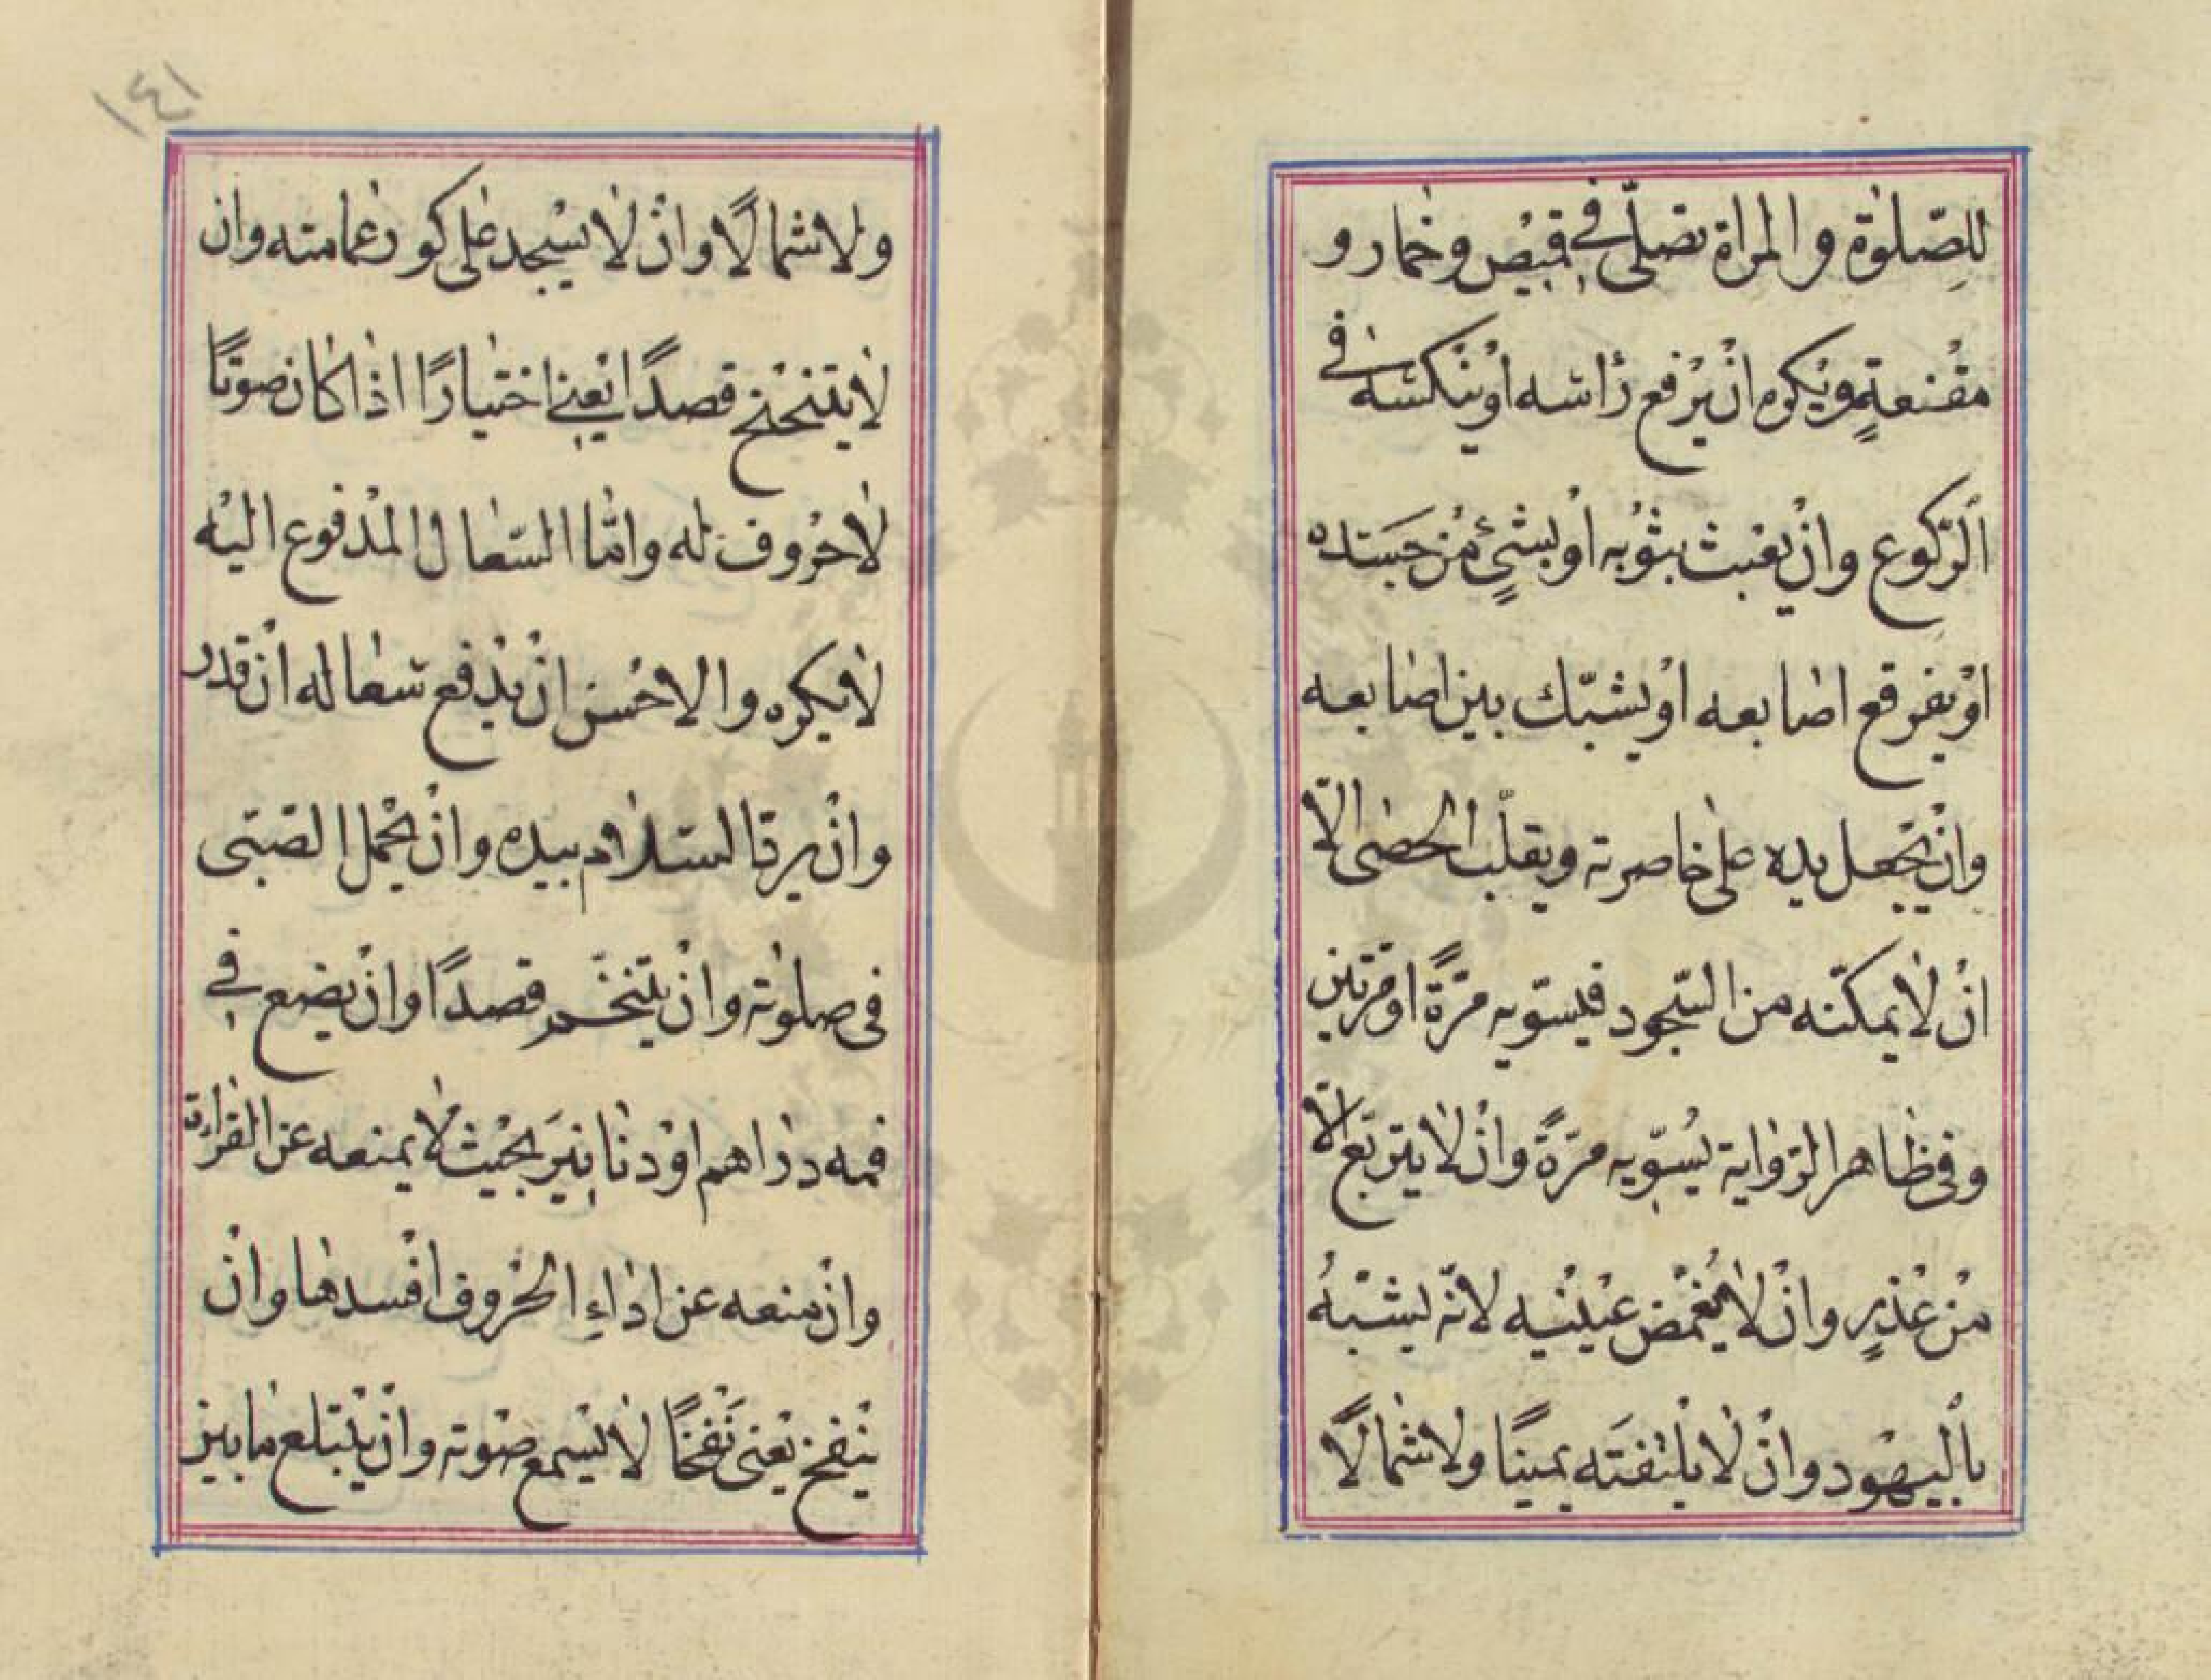 للصّلوة والمراة تصلّى في قميص وخمار و
مقنعةٍ ويكره ان يرفع رأسه او ينكسه في
الرّكوع وان يعبث بثوبه او بشئٍ من جسده
او يفرقع اصابعه او يشبّك بين اصابعه
وان يجعل يده على خاصرته ويقلّب الحصى الّا
ان لا يمكنّه من السّجود فيسوّيه مرّةً او مرّتين
وفى ظاهر الرّواية يسوّيه مرّةً وان لا يتربّع الّا
من عذرٍ وان لا يغمّض عينيه لانّه يشبه
باليهود وان لا يلتفته يمينًا ولا شمالًا
١٤١
ولا شمالًا وان لا يسجد على كور عمامته وان
لا يتنحنح قصدًا يعني اختيارًا اذا كان صوتًا
لا حروف له وامّا السّعال المدفوع اليه
لا يكره والاحسن ان يدفع سعاله ان قدر
وان يردّ السّلام بيده وان يحمل الصّبى
فى صلوته وان يتنخّم قصدًا وان يضع في
فمه دراهم او دنانير بحيث لا يمنعه عن القراءة
وان منعه عن اداءِ الحروف افسدها وان
ينفخ يعنى نفخًا لا يسمع صوته وان يبتلع ما بين